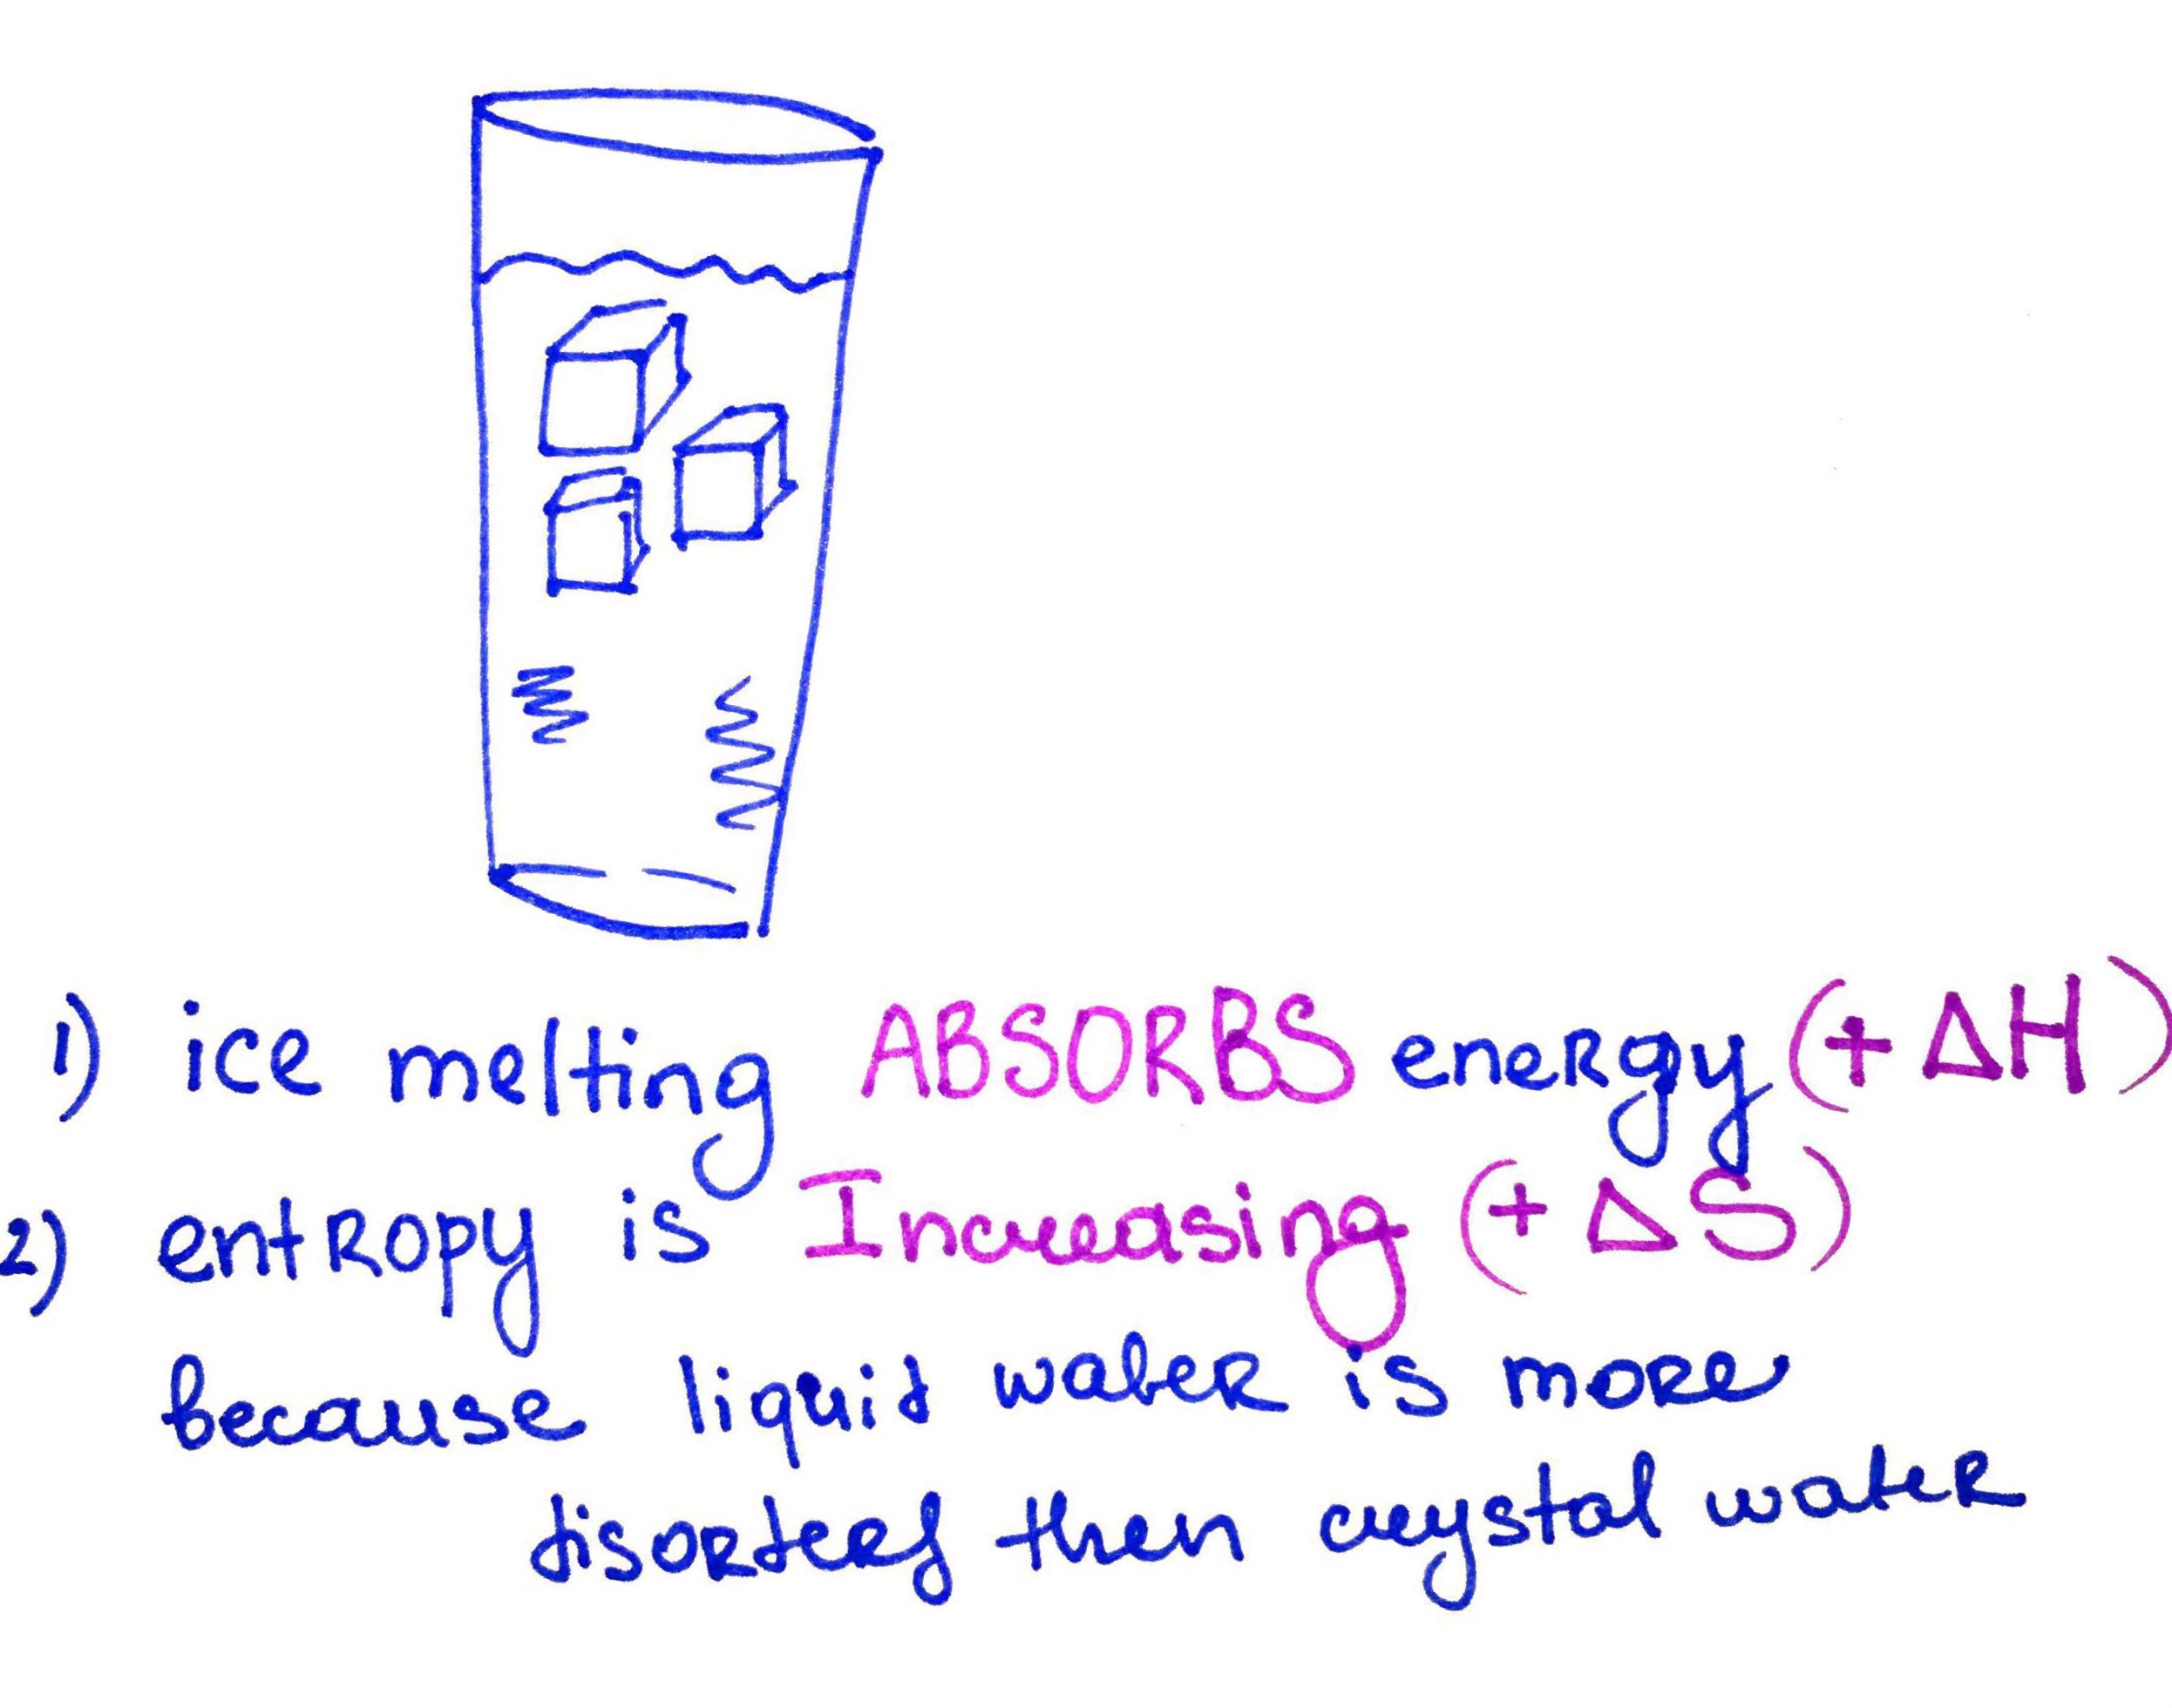 1) ice melting ABSORBS energy (+ ΔH)
2) entropy is Increasing (+ ΔS)
because liquid water is more
disorderly then crystal water